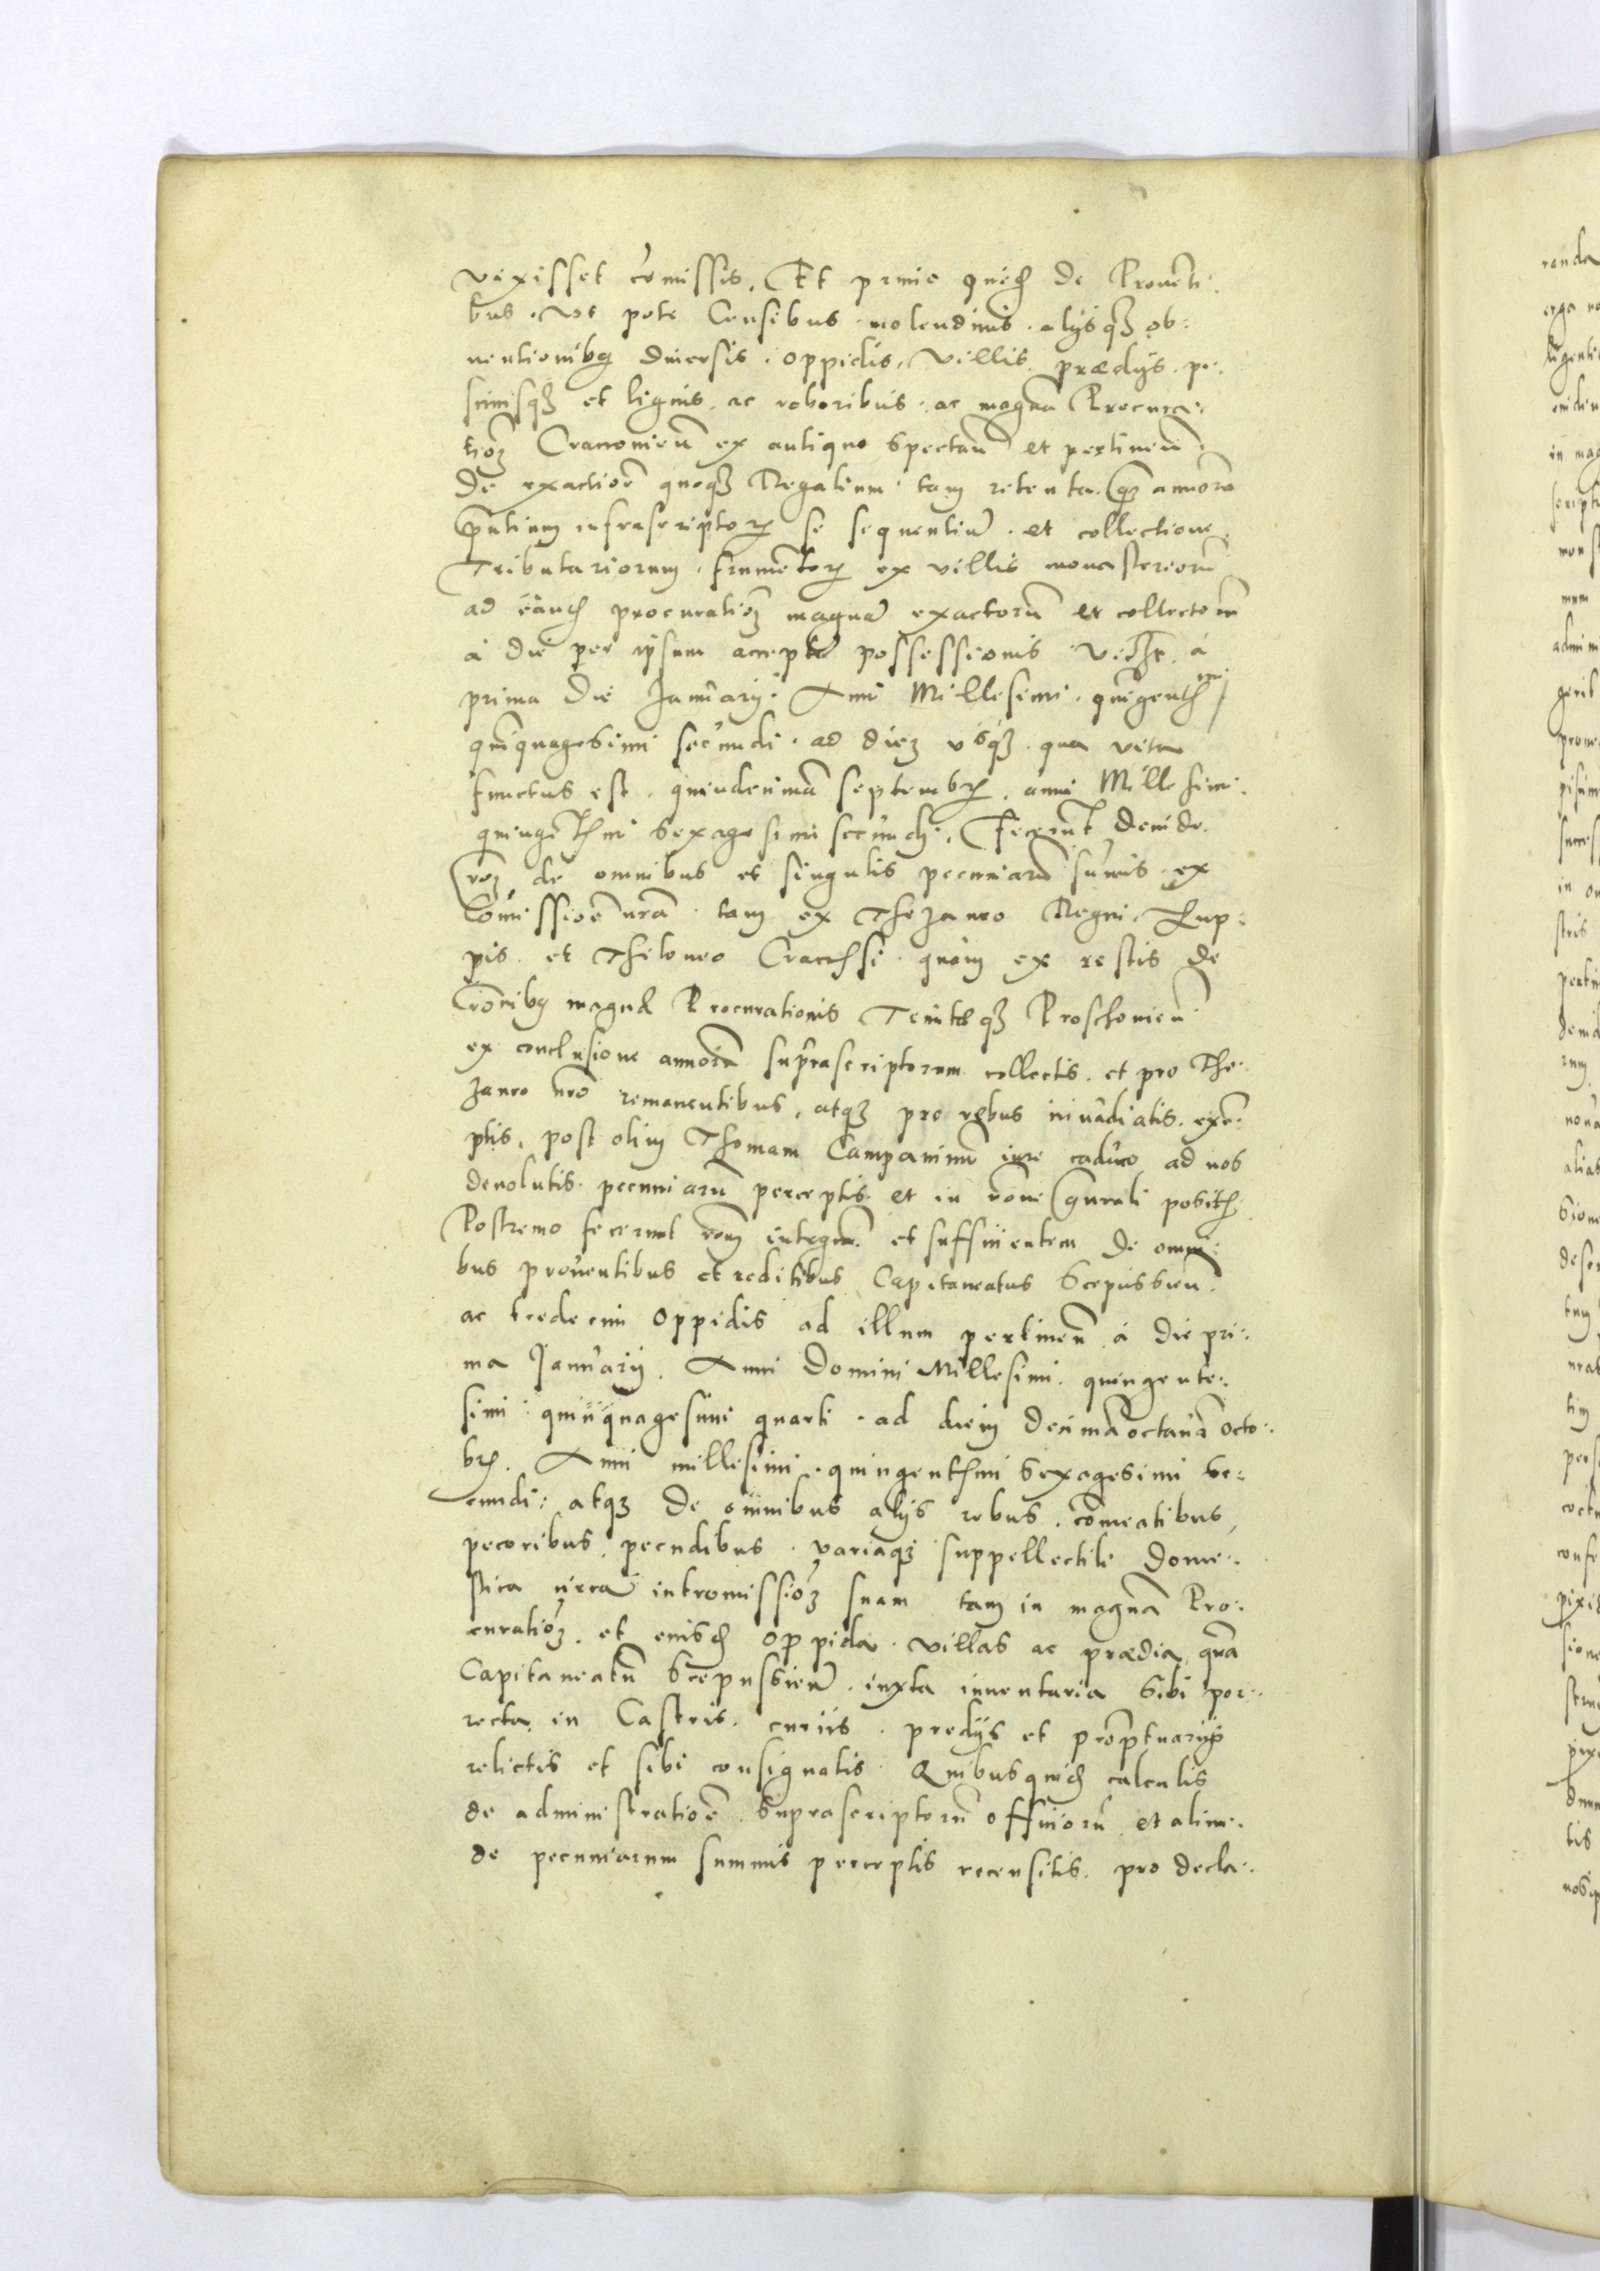 vixisset cõmissis, Et primo quid(em) de Prouenti:
bus. Vt pote Censibus molendinis alysq(ue) ob:
uentionibq diuersis oppidis, Villis, prædijs pi:
scinisq(ue) et lignis, ac roboribus ac magnã Procura:
tioẽ Cracouieñ ex antiquo spectañ et pertineñ.
De exactioẽ quoq(ue) Regalium tam retenta, q annorũ
pñtium infrascriptor(um) se sequentiũ et collectione
Tributariorum, frumẽtor(um) ex villis monasteriorũ
ad eand(em) procuratioẽ magnã exactorũ et collectorũ
à die per ipsum acceptæ possessionis videl(ice)t à
prima die Januarij Anni Millesimi quingent(esi)mi
quinquagesimi secundi ad diem vsq(ue) qua vita
functus est quindecimã Septembr(is) anni Millesimi
quingẽt(esi)mi sexagesimi secundi, Fecerunt deinde
rõem de omnibus et singulis pecuniarũ sũmis ex
Cõmissioẽ nrã tam ex Thezauro Regni, Zup:
pis et Theloneo Cracẽsi quàm ex restis de
Crõnibq magnæ Procurationis Tenutæq(ue) Proschouieñ
ex conclusione annorũ supràscriptorum collectis et pro The:
zauro nrõ remanentibus, atq(ue) pro rebus inuadiatis exẽ:
ptis, post olim Thomam Campaninũ iure caduco ad nos
deuolutis pecuniarũ perceptis et in rõne gñrali posit(is)
Postremo fecerunt rõem integrã et sufficientem de omni:
bus prouentibus et reditibus Capitaneatus Scepusieñ
ac tredecim Oppidis ad illum pertineñ à die pri:
ma Januarij. Anni Domini Millesimi quingente:
simi quinquagesimi quarti ad diem decimã octauã Octo:
br(is). Anni millesimi quingent(esi)mi sexagesimi se:
cundi: atq(ue) de omnibus alijs rebus, cõmeatibus,
pecoribus, pecudibus variaq(ue) suppellectili dome:
stica circa intromissioẽ suam tam in magnã Pro:
curatioẽ, et eiusd(em) oppida villas ac prædia, quã
Capitaneatũ Scepusieñ iuxta inuentaria sibi por:
recta in Castris curijs predijs et prõptuarijs
relictis et sibi consignatis Quibusquid(em) calculis
de administratioẽ suprascriptorũ officiorũ et aliun:
de pecuniarum summis perceptis recensitis pro decla: